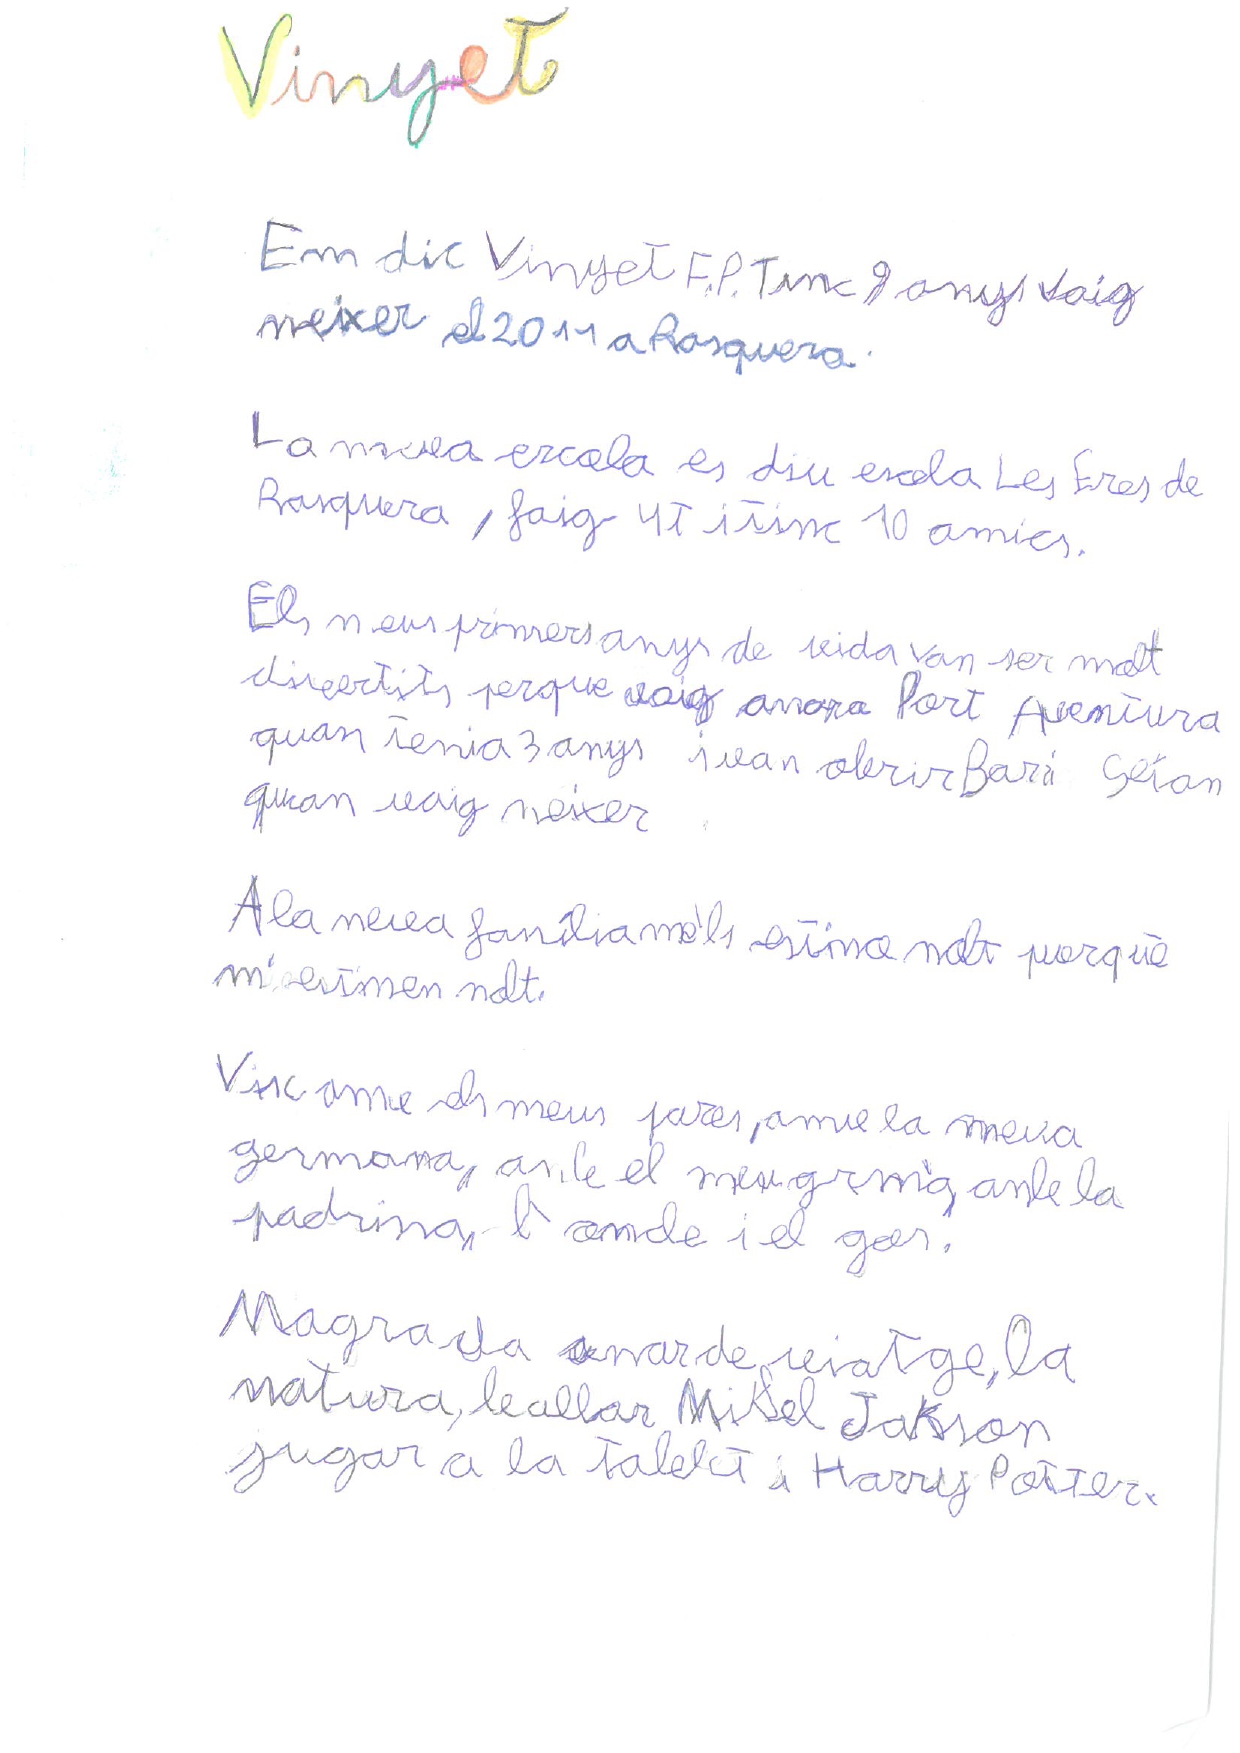 Vinyet
Em dic Vinyet F.P. Tinc 9 anys Vaig
neixer el 2011 a Rasquera.
La meva escola es diu escola Les Eres de
Rasquera, faig 4T i tinc 10 amics.
Els neus primers anys de vida van ser molt
divertits perque vaig anar a Port Aventura
quan tenia 3 anys i van obrir Bari Gotan
quan vaig neixer
A la neva família me'ls estimo nolt perquè
m'estimen nolt.
Visc amb els meus pares, amb la meva
germana, anb el meu germà, anb la
padrina, l'onde i el gos.
Magrada anar de viatge, la
natura, ballar Mikel Jakson
jugar a la tablet i Harry Potter.